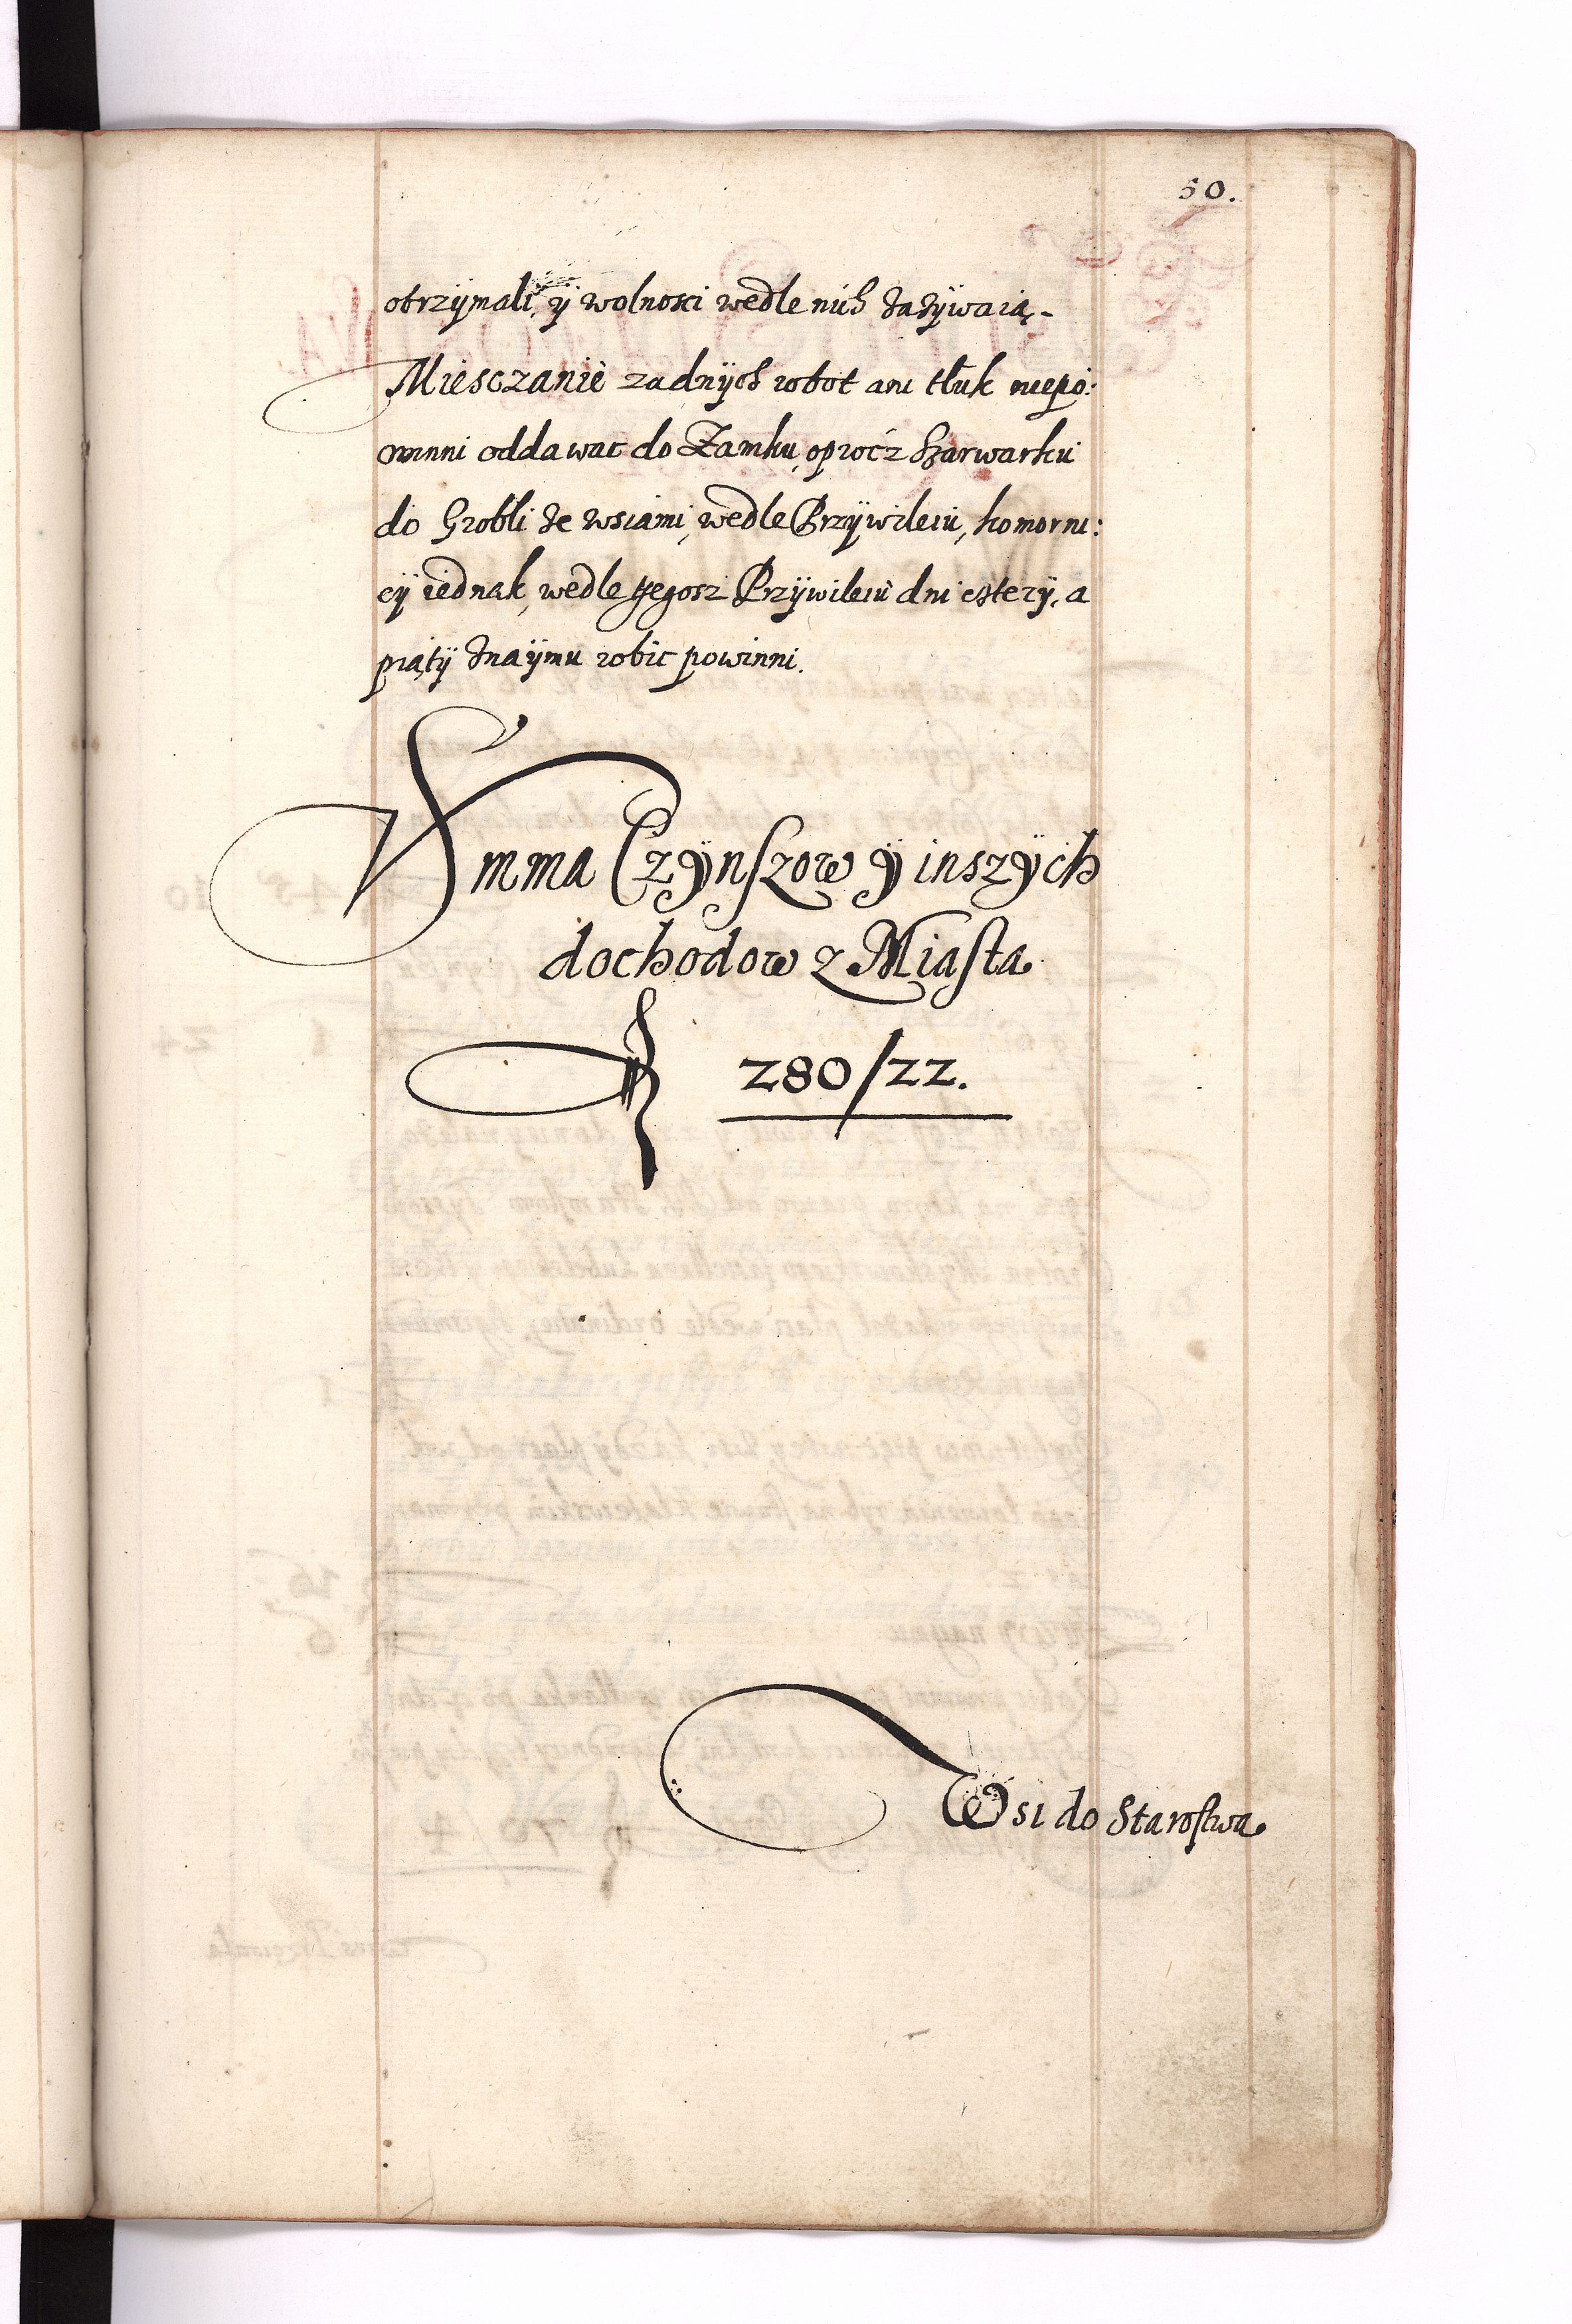 50.
otrzÿmali, ÿ wolnosci wedle nich zazÿwaią.
Miesczanie zadnÿch robot ani tłuk niepo:
winni oddawac do Zamku, oprocz Szarwarku
do Grobli ze wsiami, wedle Przÿwileiu, komorni:
cÿ iednak, wedle tegosz Przÿwileiu dni cztery, a
piątÿ znaÿmu robic powinni.
Summa Czÿnszow ÿ inszÿch
dochodow z Miasta
fl 280/22.
Wsi do Starostwa